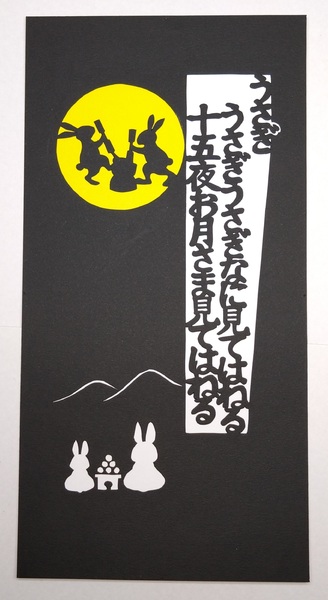 うさぎ
うさぎうさぎなに見てはねる
十五夜お月さま見てはねる